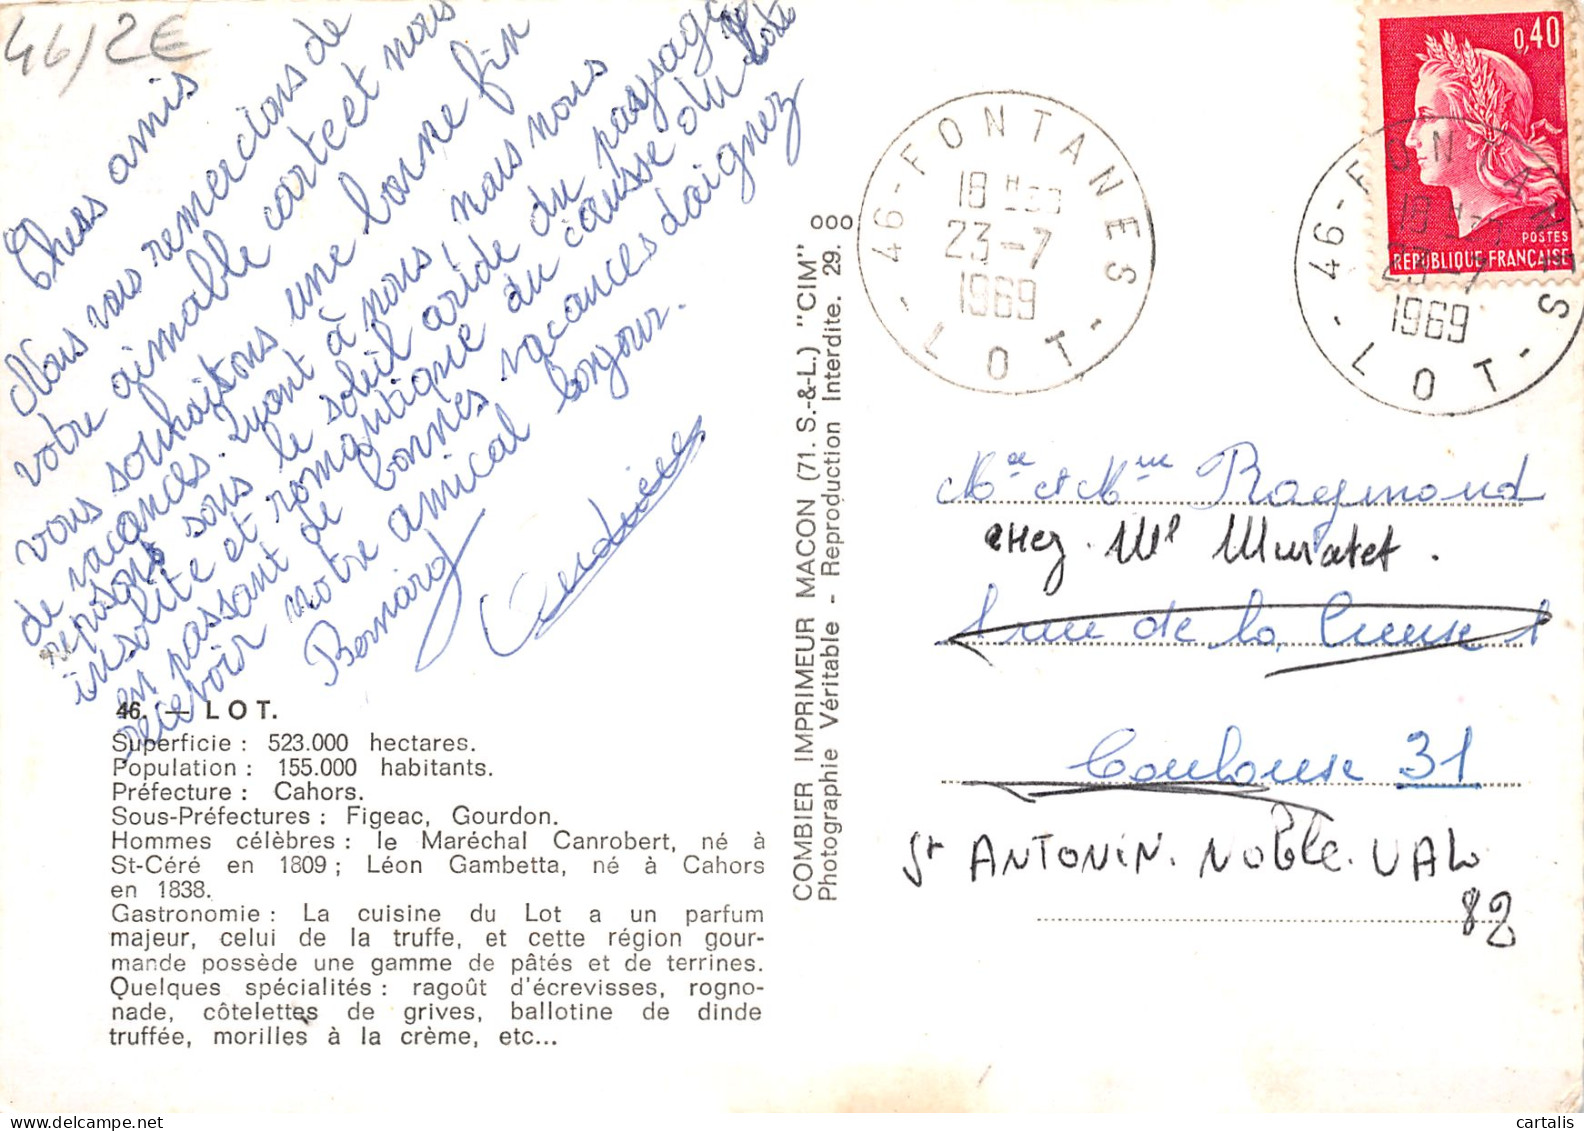 46/2€
Chers amis
Nous vous remercions de
votre aimable carte et nous
vous souhaitons une bonne fin
de vacances. Quant à nous, nous nous
reposons sous le soleil aride du paysage
insolite et romantique du causse du Lot
en passant de bonnes vacances daignez
recevoir notre amical bonjour.
Bernard
46. — LOT.
Superficie : 523.000 hectares.
Population : 155.000 habitants.
Préfecture : Cahors.
Sous-Préfectures : Figeac, Gourdon.
Hommes célèbres : le Maréchal Canrobert, né à
St-Céré en 1809 ; Léon Gambetta, né à Cahors
en 1838.
Gastronomie : La cuisine du Lot a un parfum
majeur, celui de la truffe, et cette région gour-
mande possède une gamme de pâtés et de terrines.
Quelques spécialités : ragoût d'écrevisses, rogno-
nade, côtelettes de grives, ballotine de dinde
truffée, morilles à la crème, etc...
COMBIER IMPRIMEUR MACON (71. S.-&-L.) "CIM"
Photographie Véritable - Reproduction Interdite. 29.
000
46-FONTANES
18 H
23-7
1969
- LOT -
0,40
POSTES
REPUBLIQUE FRANÇAISE
46-FONTANES
18 H
23-7
1969
- LOT -
Mr et Mme Raymond
CHez. Ml Muratet.
1 rue de la Creuse 1
Toulouse 31
St ANTONIN. NOBLE. VAL
82
cartalis